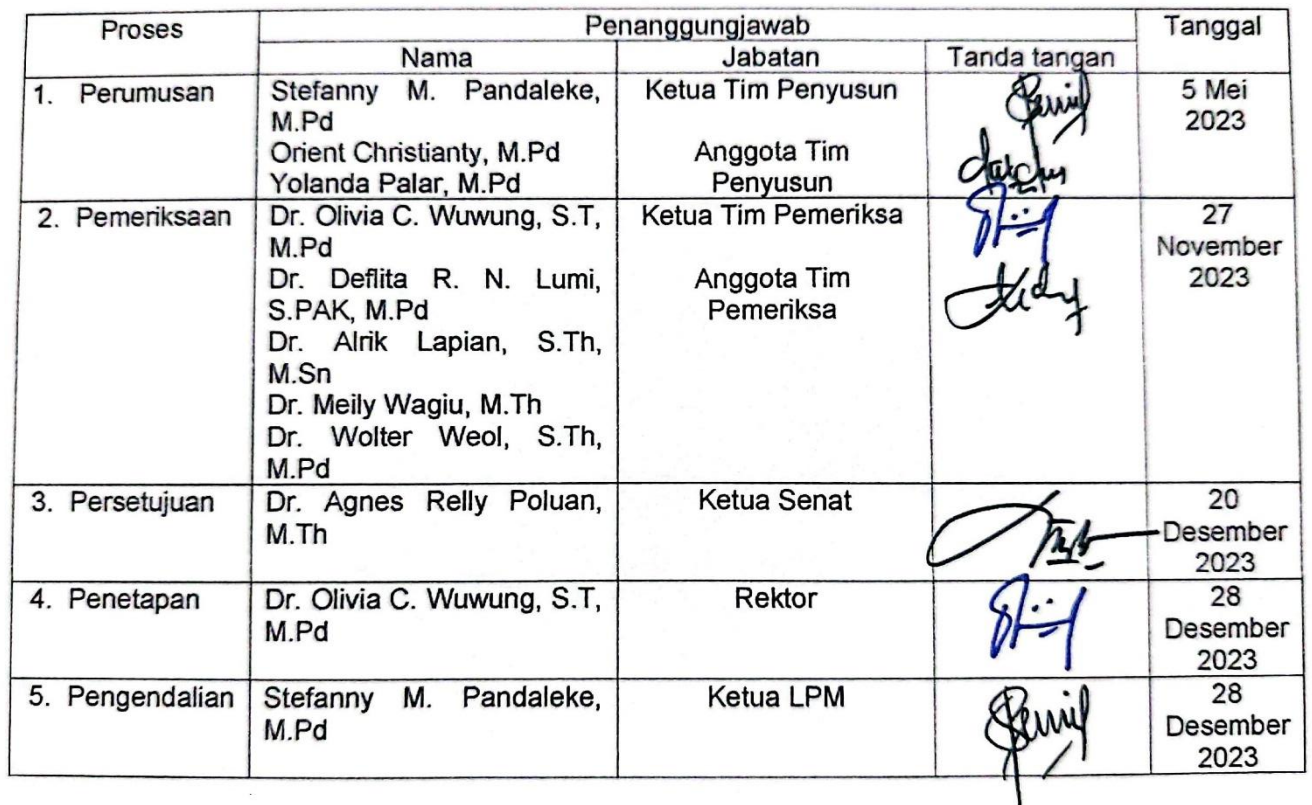 Proses
Penanggungjawab
Tanggal
Nama
Jabatan
Tanda tangan
1. Perumusan
Stefanny M. Pandaleke,
M.Pd
Orient Christianty, M.Pd
Yolanda Palar, M.Pd
Ketua Tim Penyusun
Anggota Tim
Penyusun
5 Mei
2023
2. Pemeriksaan
Dr. Olivia C. Wuwung, S.T,
M.Pd
Dr. Deflita R. N. Lumi,
S.PAK, M.Pd
Dr. Alrik Lapian, S.Th,
M.Sn
Dr. Meily Wagiu, M.Th
Dr. Wolter Weol, S.Th,
M.Pd
Ketua Tim Pemeriksa
Anggota Tim
Pemeriksa
27
November
2023
3. Persetujuan
Dr. Agnes Relly Poluan,
M.Th
Ketua Senat
20
Desember
2023
4. Penetapan
Dr. Olivia C. Wuwung, S.T,
M.Pd
Rektor
28
Desember
2023
5. Pengendalian
Stefanny M. Pandaleke,
M.Pd
Ketua LPM
28
Desember
2023